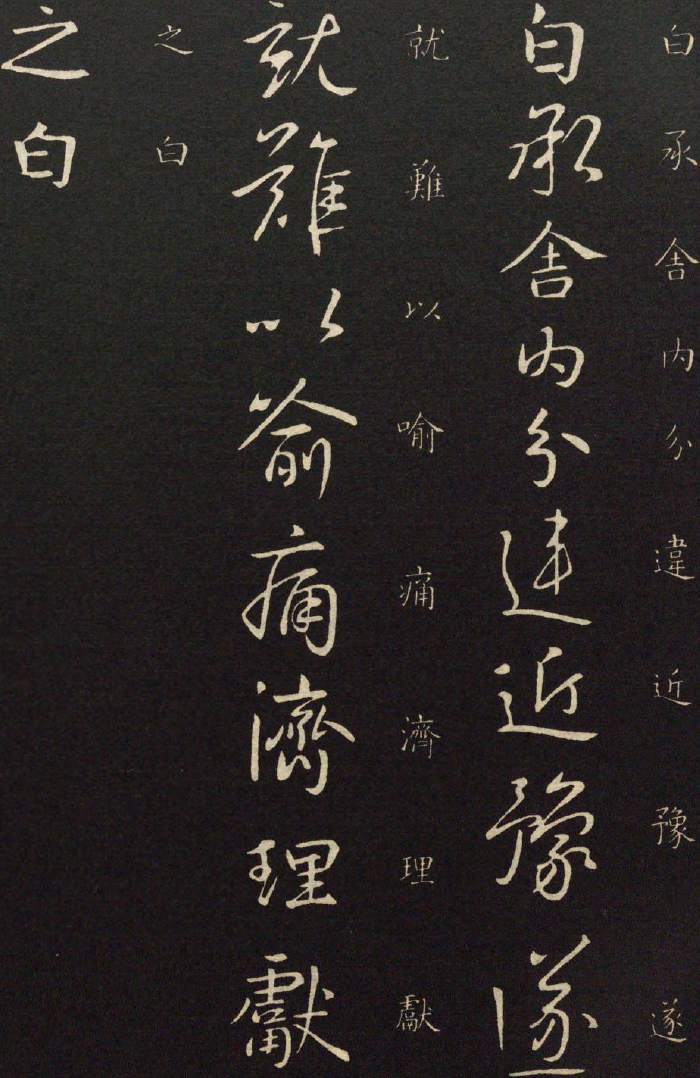 白承舍內分違近豫遂
白承舍內分違近豫遂
就難以喻痛濟理獻
就難以喻痛濟理獻
之白
之白